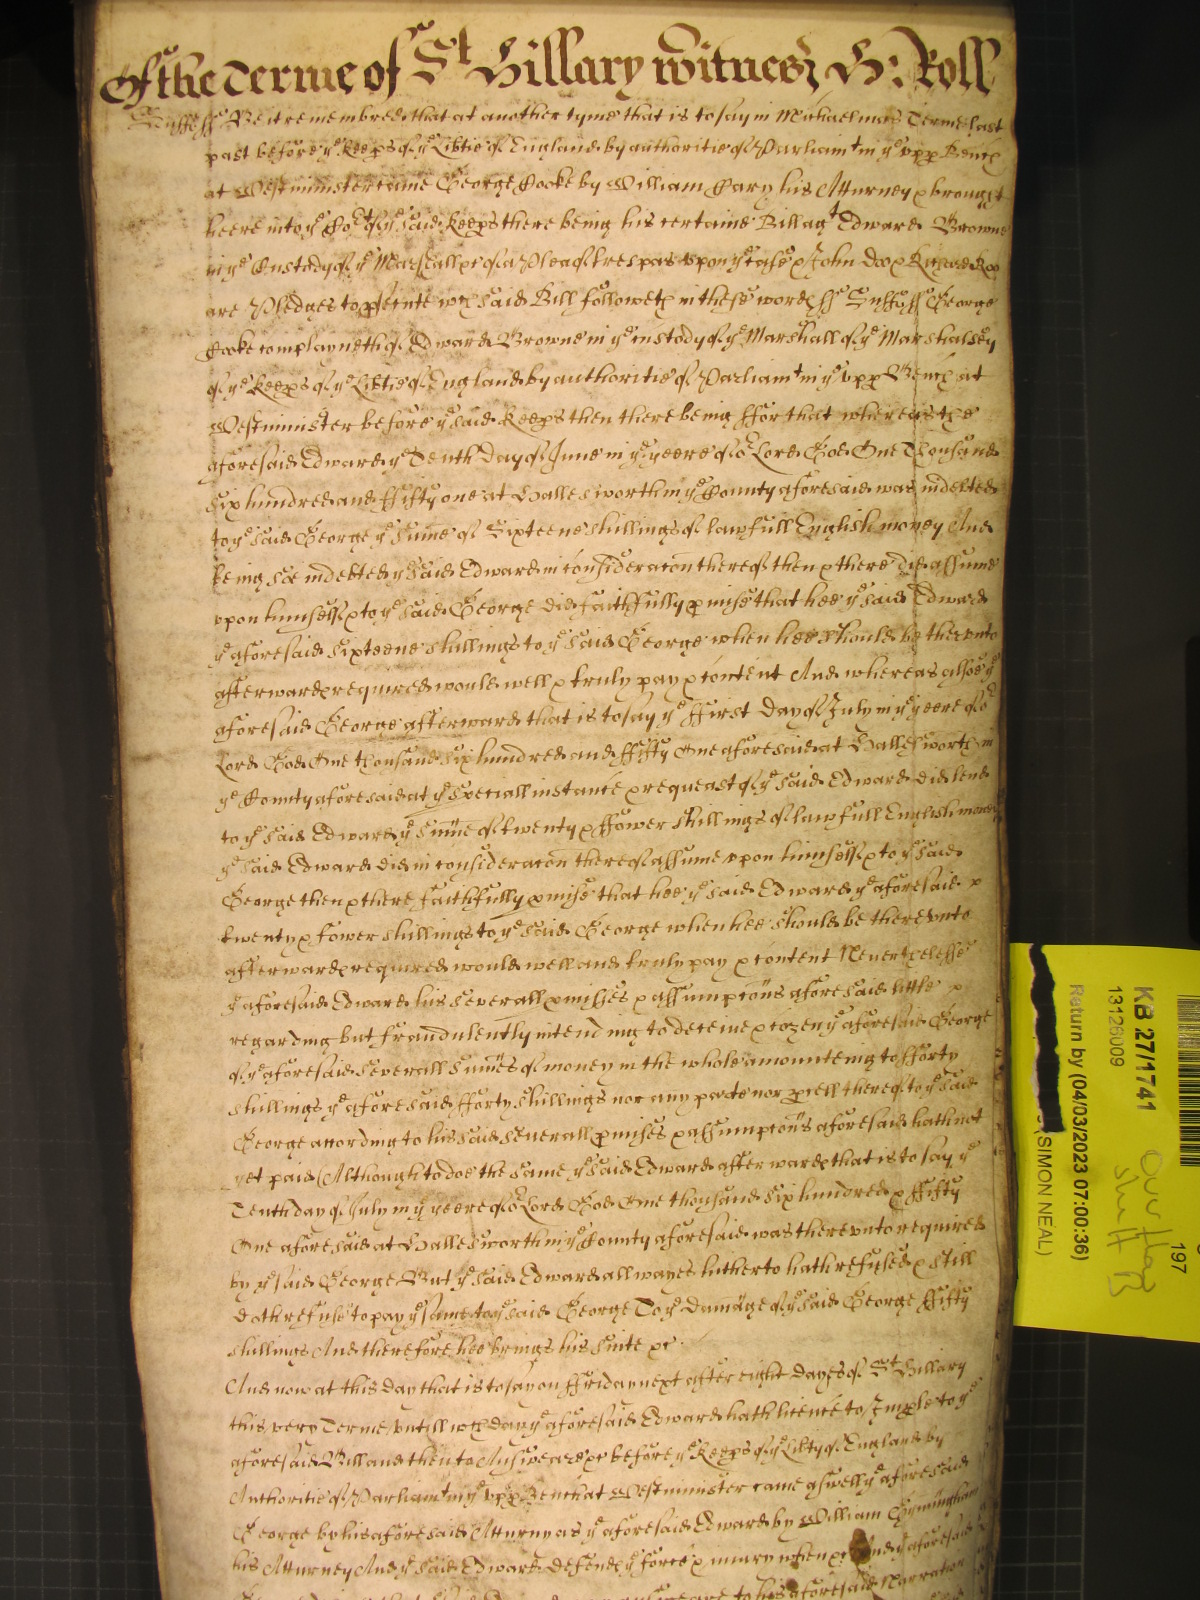 Of the Terme of St Hillary Witnes H: Roll
Suff ss Be it remembred that at another tyme that is to say in Michaelmas Terme last
past before ye Keeps of ye Libtie of England by authoritie of Parliamt in ye vpp Bench
at Westminster came George Cooke by William Cary his Atturney & brought
heere into ye Cot of ye said Keeps there being his certaine Bill agt Edward Browne
in ye Custody of ye Marshall &c of a Plea of trespas vpon ye case & John doo & Richard Roo
are Pledges to psecute wch said Bill followeth in these words ss Suffolk ss George
Cooke complayneth of Edward Browne in ye custody of ye Marshall of ye Marshalsey
of ye Keeps of ye Libtie of England by authoritie of Parliamt in ye vpp Bench at
Westminister before ye said Keeps then there being ffor that whereas the
aforesaid Edward ye Tenth Day of June in ye yeere of or Lord God One Thousand
Six hundred and ffifty one at Hallesworth in ye County aforesaid was indebted
to ye said George ye sume of Sixteene shillings of lawfull English money And
being soe indebted ye said Edward in consideracon thereof then & there did assume
vpon himselfe & to ye said George did faithfully pmise that hee ye said Edward
ye aforesaid sixteene shillings to ye said George when hee should be therevnto
afterwards required would well & truly pay & content And whereas alsoe ye
aforesaid George afterward that is to say ye ffirst Day of July in ye yeere of or
Lord God One thousand Six hundred and ffifty One aforesaid at Hallesworth in
ye County aforesaid at ye speciall instance & requeast of ye said Edward did lend
to ye said Edward ye sume of twenty & ffower shillings of lawfull English money
ye said Edward did in consideracon thereof assume vpon himselfe & to ye said
George then & there faithfully pmise that hee ye said Edward ye aforesaid
twenty & fower shillings to ye said George when hee should be therevnto
afterwards required would well and truly pay & content Neverthelesse
ye aforesaid Edward his severall pmisses & assumpcons aforesaid little
regarding but fraudulently intending to deceive & cozen ye aforesaid George
of ye aforesaid severall sumes of money in the whole amounteing to fforty
shillings ye aforesaid fforty shillings nor any parte nor pcell thereof to ye said
George according to his said severall pmises & assumpcons aforesaid hath not
yet paid Although to doe the same ye said Edward afterwards that is to say ye
Tenth day of July in ye yeere of or Lord God One thousand Six hundred & ffifty
One aforesaid at Hallesworth in ye County aforesaid was therevnto required
by ye said George But ye said Edward allwayes hitherto hath refused & still
doth refuse to pay ye same to ye said George To ye damage of ye said George ffifty
shillings And therefore hee brings his suite &c
And now at this day that is to say on ffriday next after eight dayes of St Hillary
this very Terme vntill wch day ye aforesaid Edward hath licence to Imple to ye
aforesaid Bill and then to Answeare &c before ye Keeps of ye Libty of England by
Authoritie of Parliamt in ye vpp Bench at Westminster came aswell ye aforesaid
George by his aforesaid Atturny as ye aforesaid Edward by William
his Atturney And ye said Edward defends ye force & iniury when &c And ye aforesaid
to his aforesaid Narration
KB 27/1741
13126009
Return by (04/03/2023 07:00:36)
(SIMON NEAL)
197